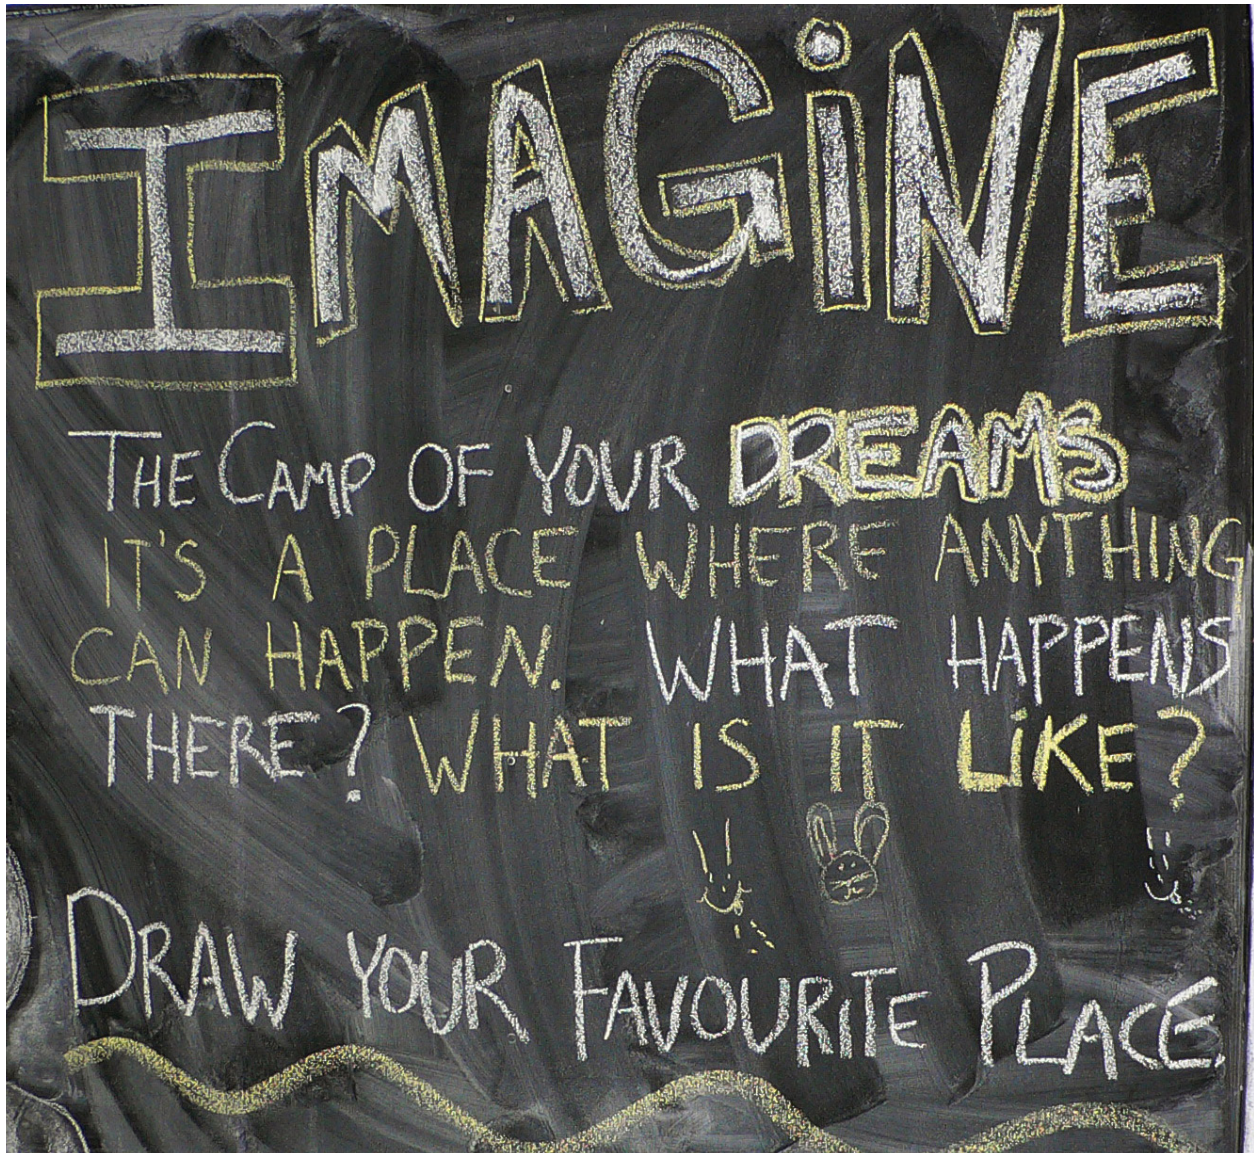 IMAGiNE
THE CAMP OF YOUR DREAMS
IT'S A PLACE WHERE ANYTHING
CAN HAPPEN. WHAT HAPPENS
THERE? WHAT IS IT LiKE?
DRAW YOUR FAVOURiTE PLACE.